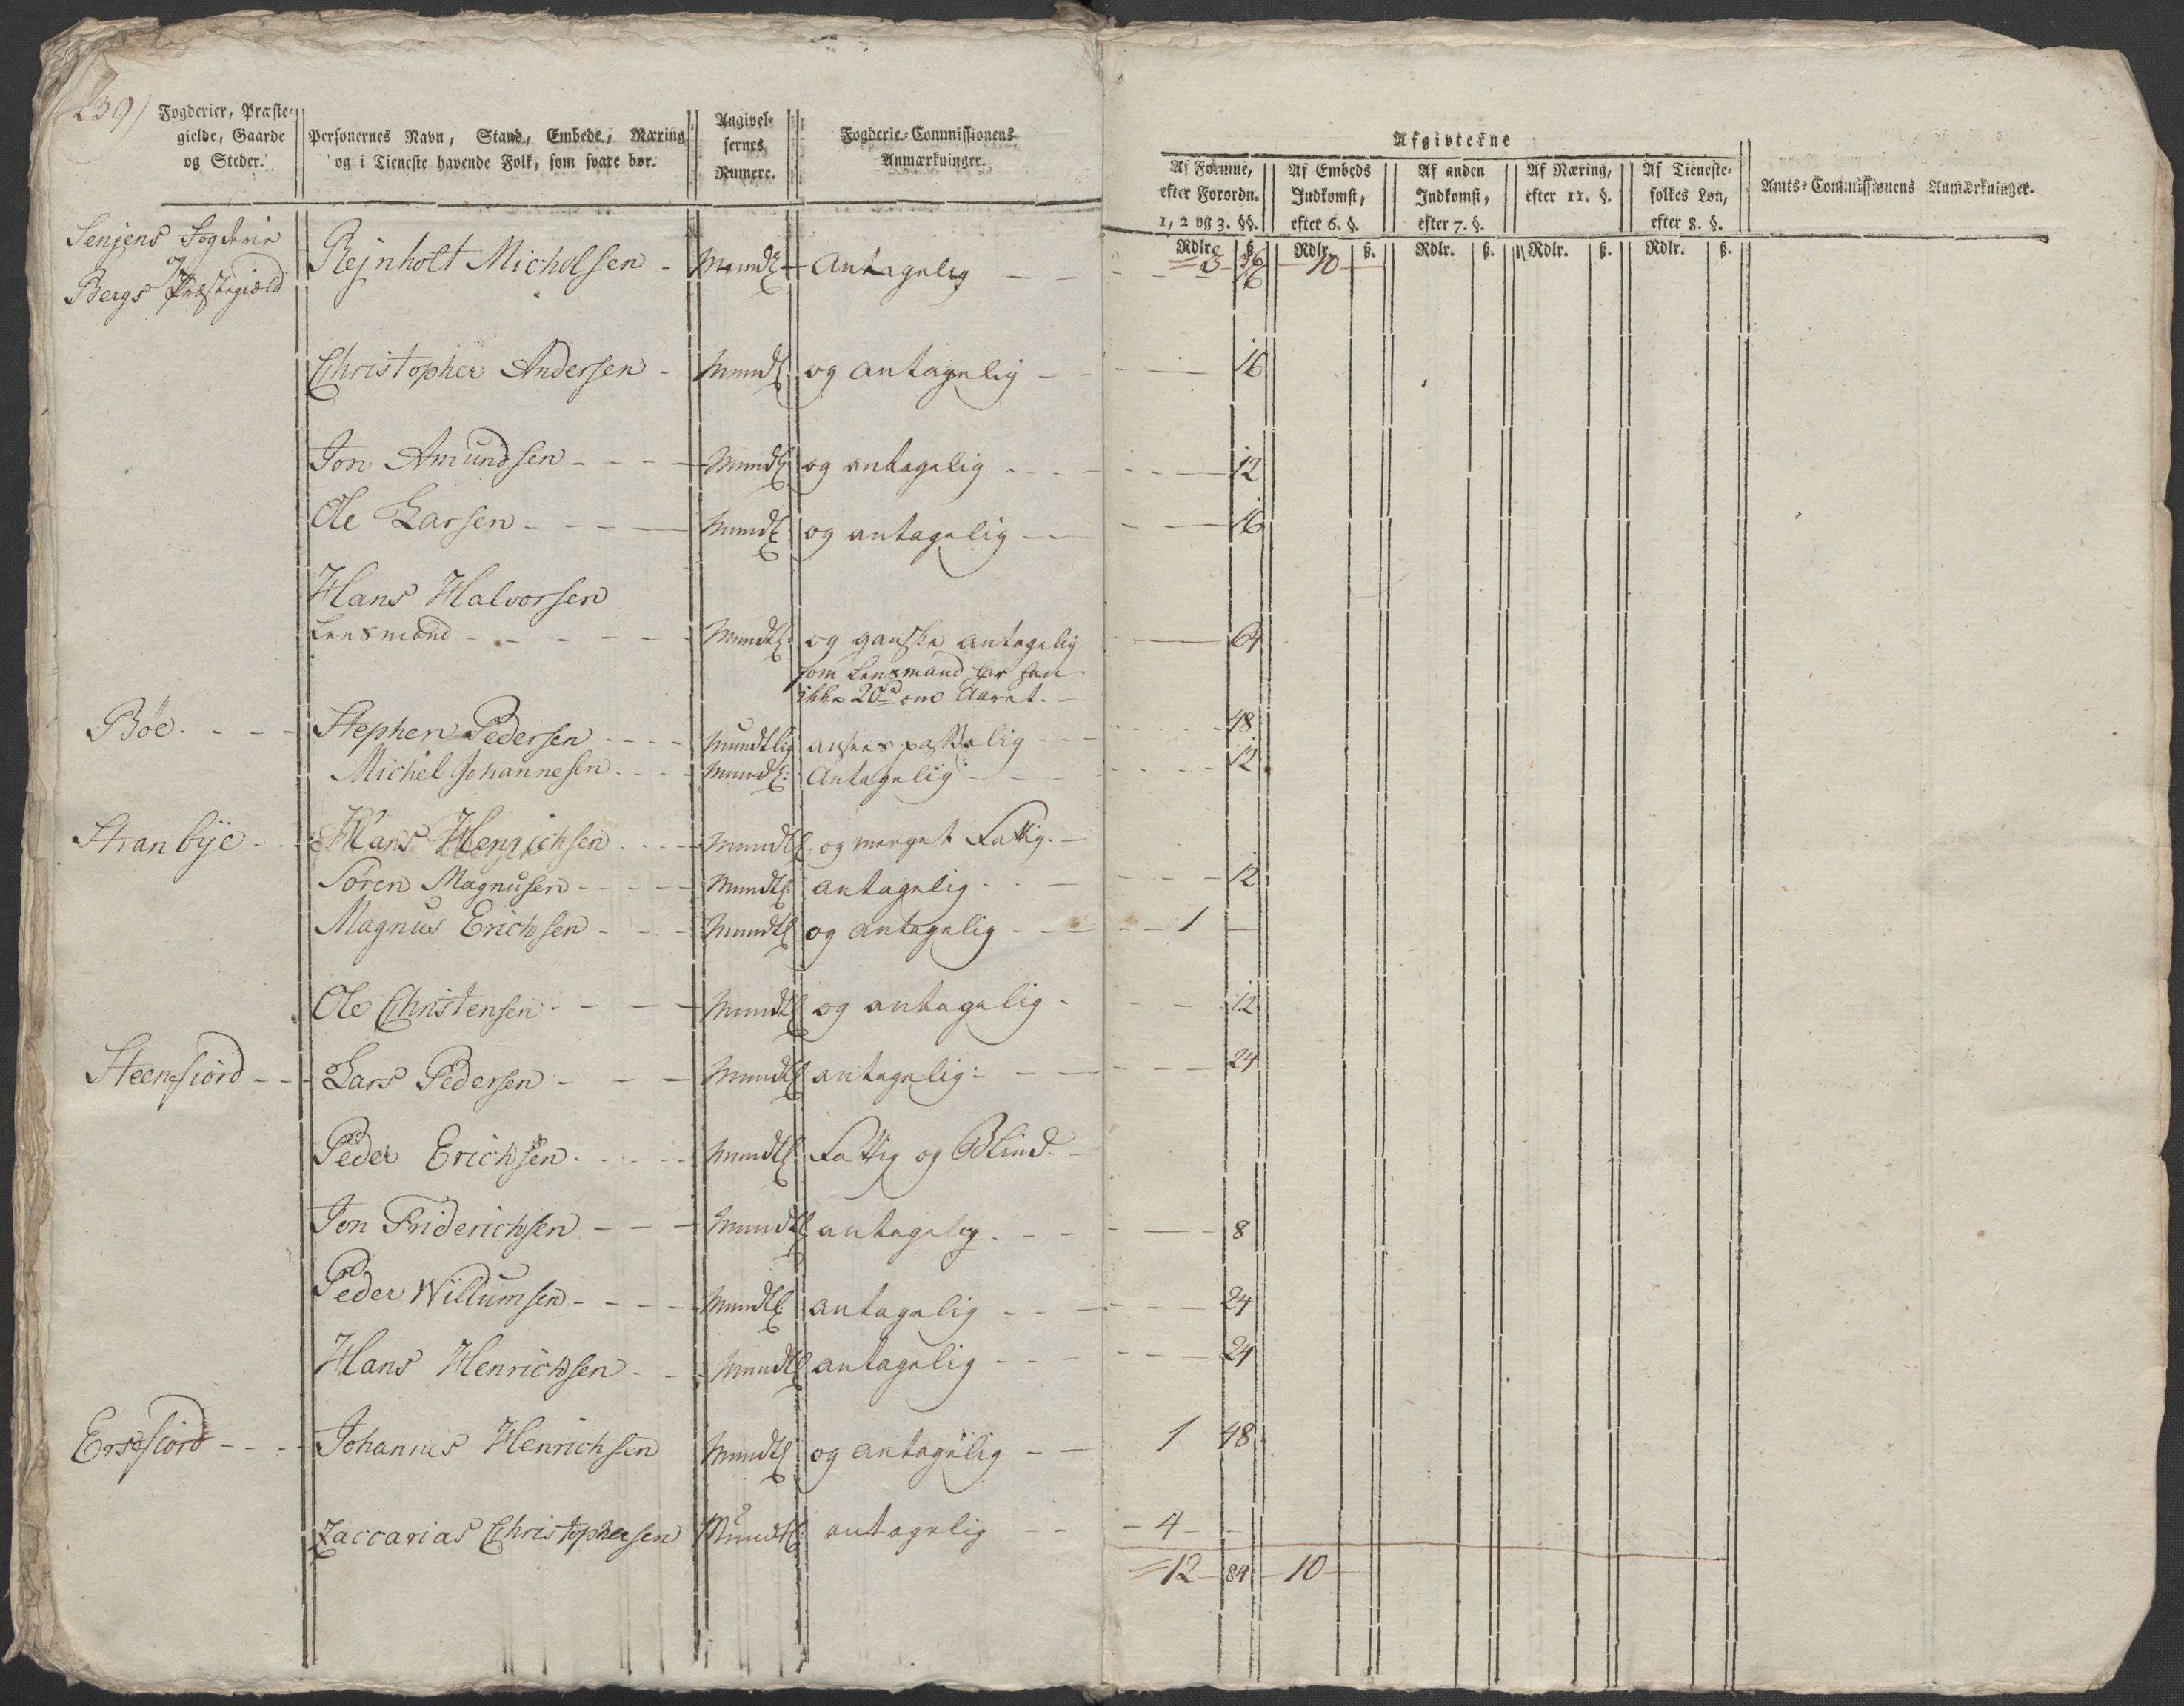 239)
Fogderier, Præste-
gielde, Gaarde
og Steder.
Personernes Navn, Stand, Embede, Næring
og i Tieneste havende Folk, som svare bør.
Angivel-
sernes
Numere.
Fogderie-Commissionens
Anmærkninger.
Afgivterne
Af Formue,
efter Forordn.
1, 2 og 3. §§.
Af Embeds
Indkomst,
efter 6. §.
Af anden
Indkomst,
efter 7. §.
Af Næring,
efter 11. §.
Af Tieneste-
folkes Løn,
efter 8. §.
Amts-Commissionens Anmærkninger.
Rdlr. ß. Rdlr. ß. Rdlr. ß. Rdlr. ß. Rdlr. ß.
Senjens Fogderie
og
Bergs Præstegield
3 36 10
Rejnholt Michelsen - Mundtl Antagelig - - 16
Christopher Andersen - Mundtl og antagelig - - 16
Jon Amundsen - - - Mundtl og antagelig - - - 12
Ole Larsen - - - - Mundtl og antagelig - - 16
Hans Halvorsen
Lensmand - - - - - Mundtl: og ganske antagelig - 64
som Lensmand har han
ikke 20 rd om Aaret. -
Bøe - - - Stephen Pedersen - - - Mundtlig ansees passelig - - - 48
Michel Johannesen - - - Mundtl: Antagelig - - - 12
Stranbye - - Hans Henrichsen - - - Mundtl og meeget Fattig. -
Søren Magnusen - - - - Mundtl: antagelig - - - 12
Magnus Erichsen - - - Mundtl og antagelig - - - 1 -
Ole Christensen - - - Mundtl og antagelig - - 12
Steensfiord - - Lars Pedersen - - - Mundtl antagelig: - - - 24
Peder Erichsen - - - Mundtl. Fattig og Blind. -
Jon Friderichsen - - - Mundtl antagelig - - - 8
Peder Willumsen - - - - Mundtl antagelig - - - 24
Hans Henrichsen - - Mundtl antagelig - - - 24
Ersfiord - - - Johannes Henrichsen Mundtl og antagelig - - 1 48
Zaccarias Christophersen Mundtl: antagelig - - - 4 - -
= 12 - 84 - 10 -